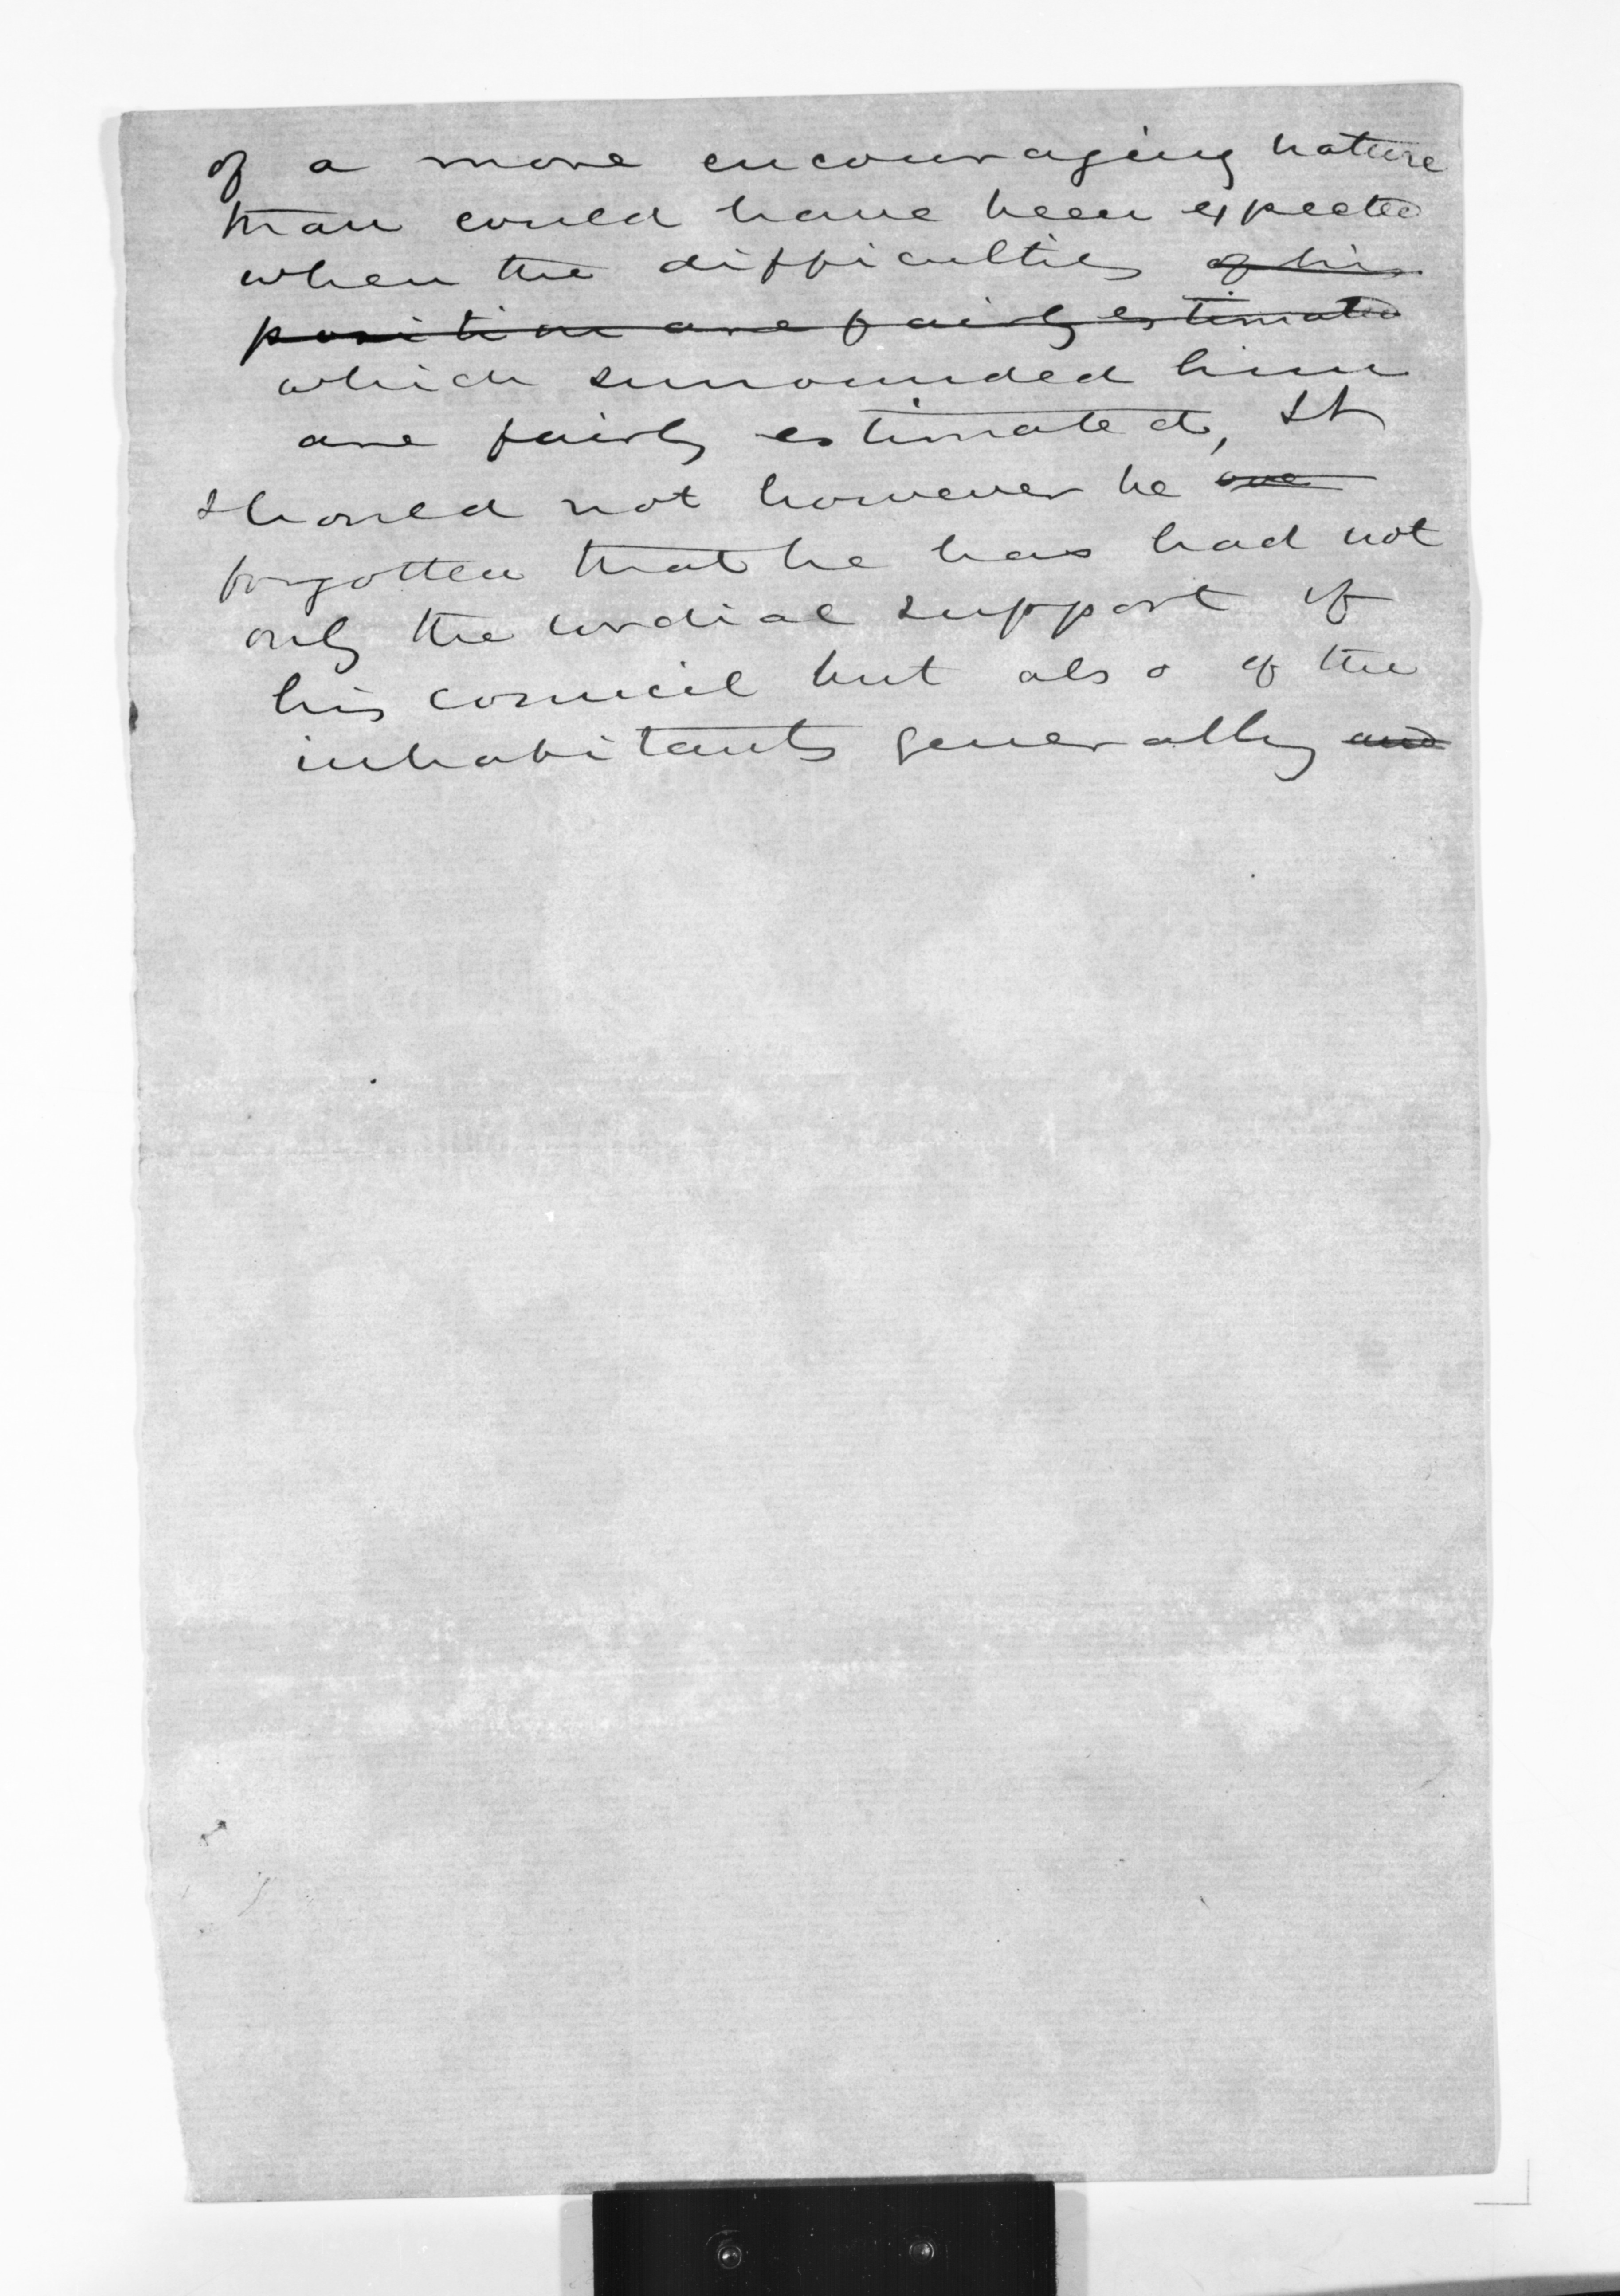 of a more encouraging nature
than could have been expected
when the difficulties of his
position are fairly estimated
which surrounded him
are fairly estimated, It
should not however be ove
forgotten that he has had not
only the cordial support of
his council but also of the
inhabitants generally and